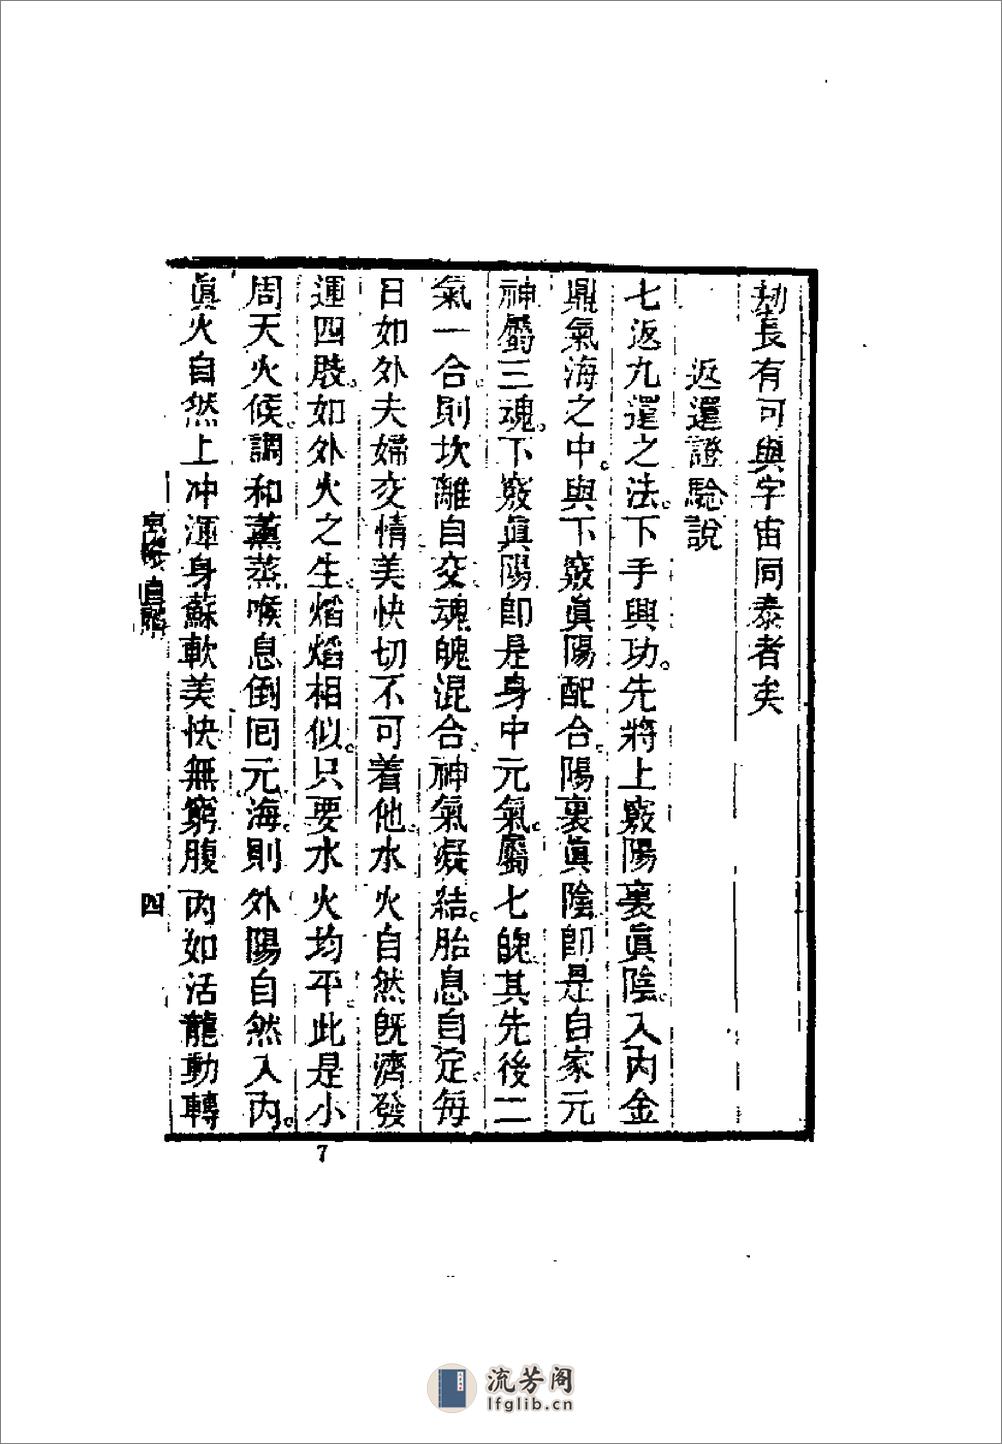 劫長有可與宇宙同泰者矣
返還證驗說
七返九還之法。下手興功。先將上竅陽裏眞陰。入內金
鼎氣海之中。與下竅眞陽配合。陽裏眞陰。卽是自家元
神。屬三魂。下竅眞陽。卽是身中元氣。屬七魄。其先後二
氣一合。則坎離自交。魂魄混合。神氣凝結。胎息自定。每
日如外夫婦交情美快。切不可着他。水火自然旣濟。發
運四肢。如外火之生。焰焰相似。只要水火均平。此是小
周天火候。調和薰蒸。喉息倒回元海。則外陽自然入內。
眞火自然上冲。渾身蘇軟。美快無窮。腹內如活龍動轉
直解
四
7
流芳阁
lfglib.cn